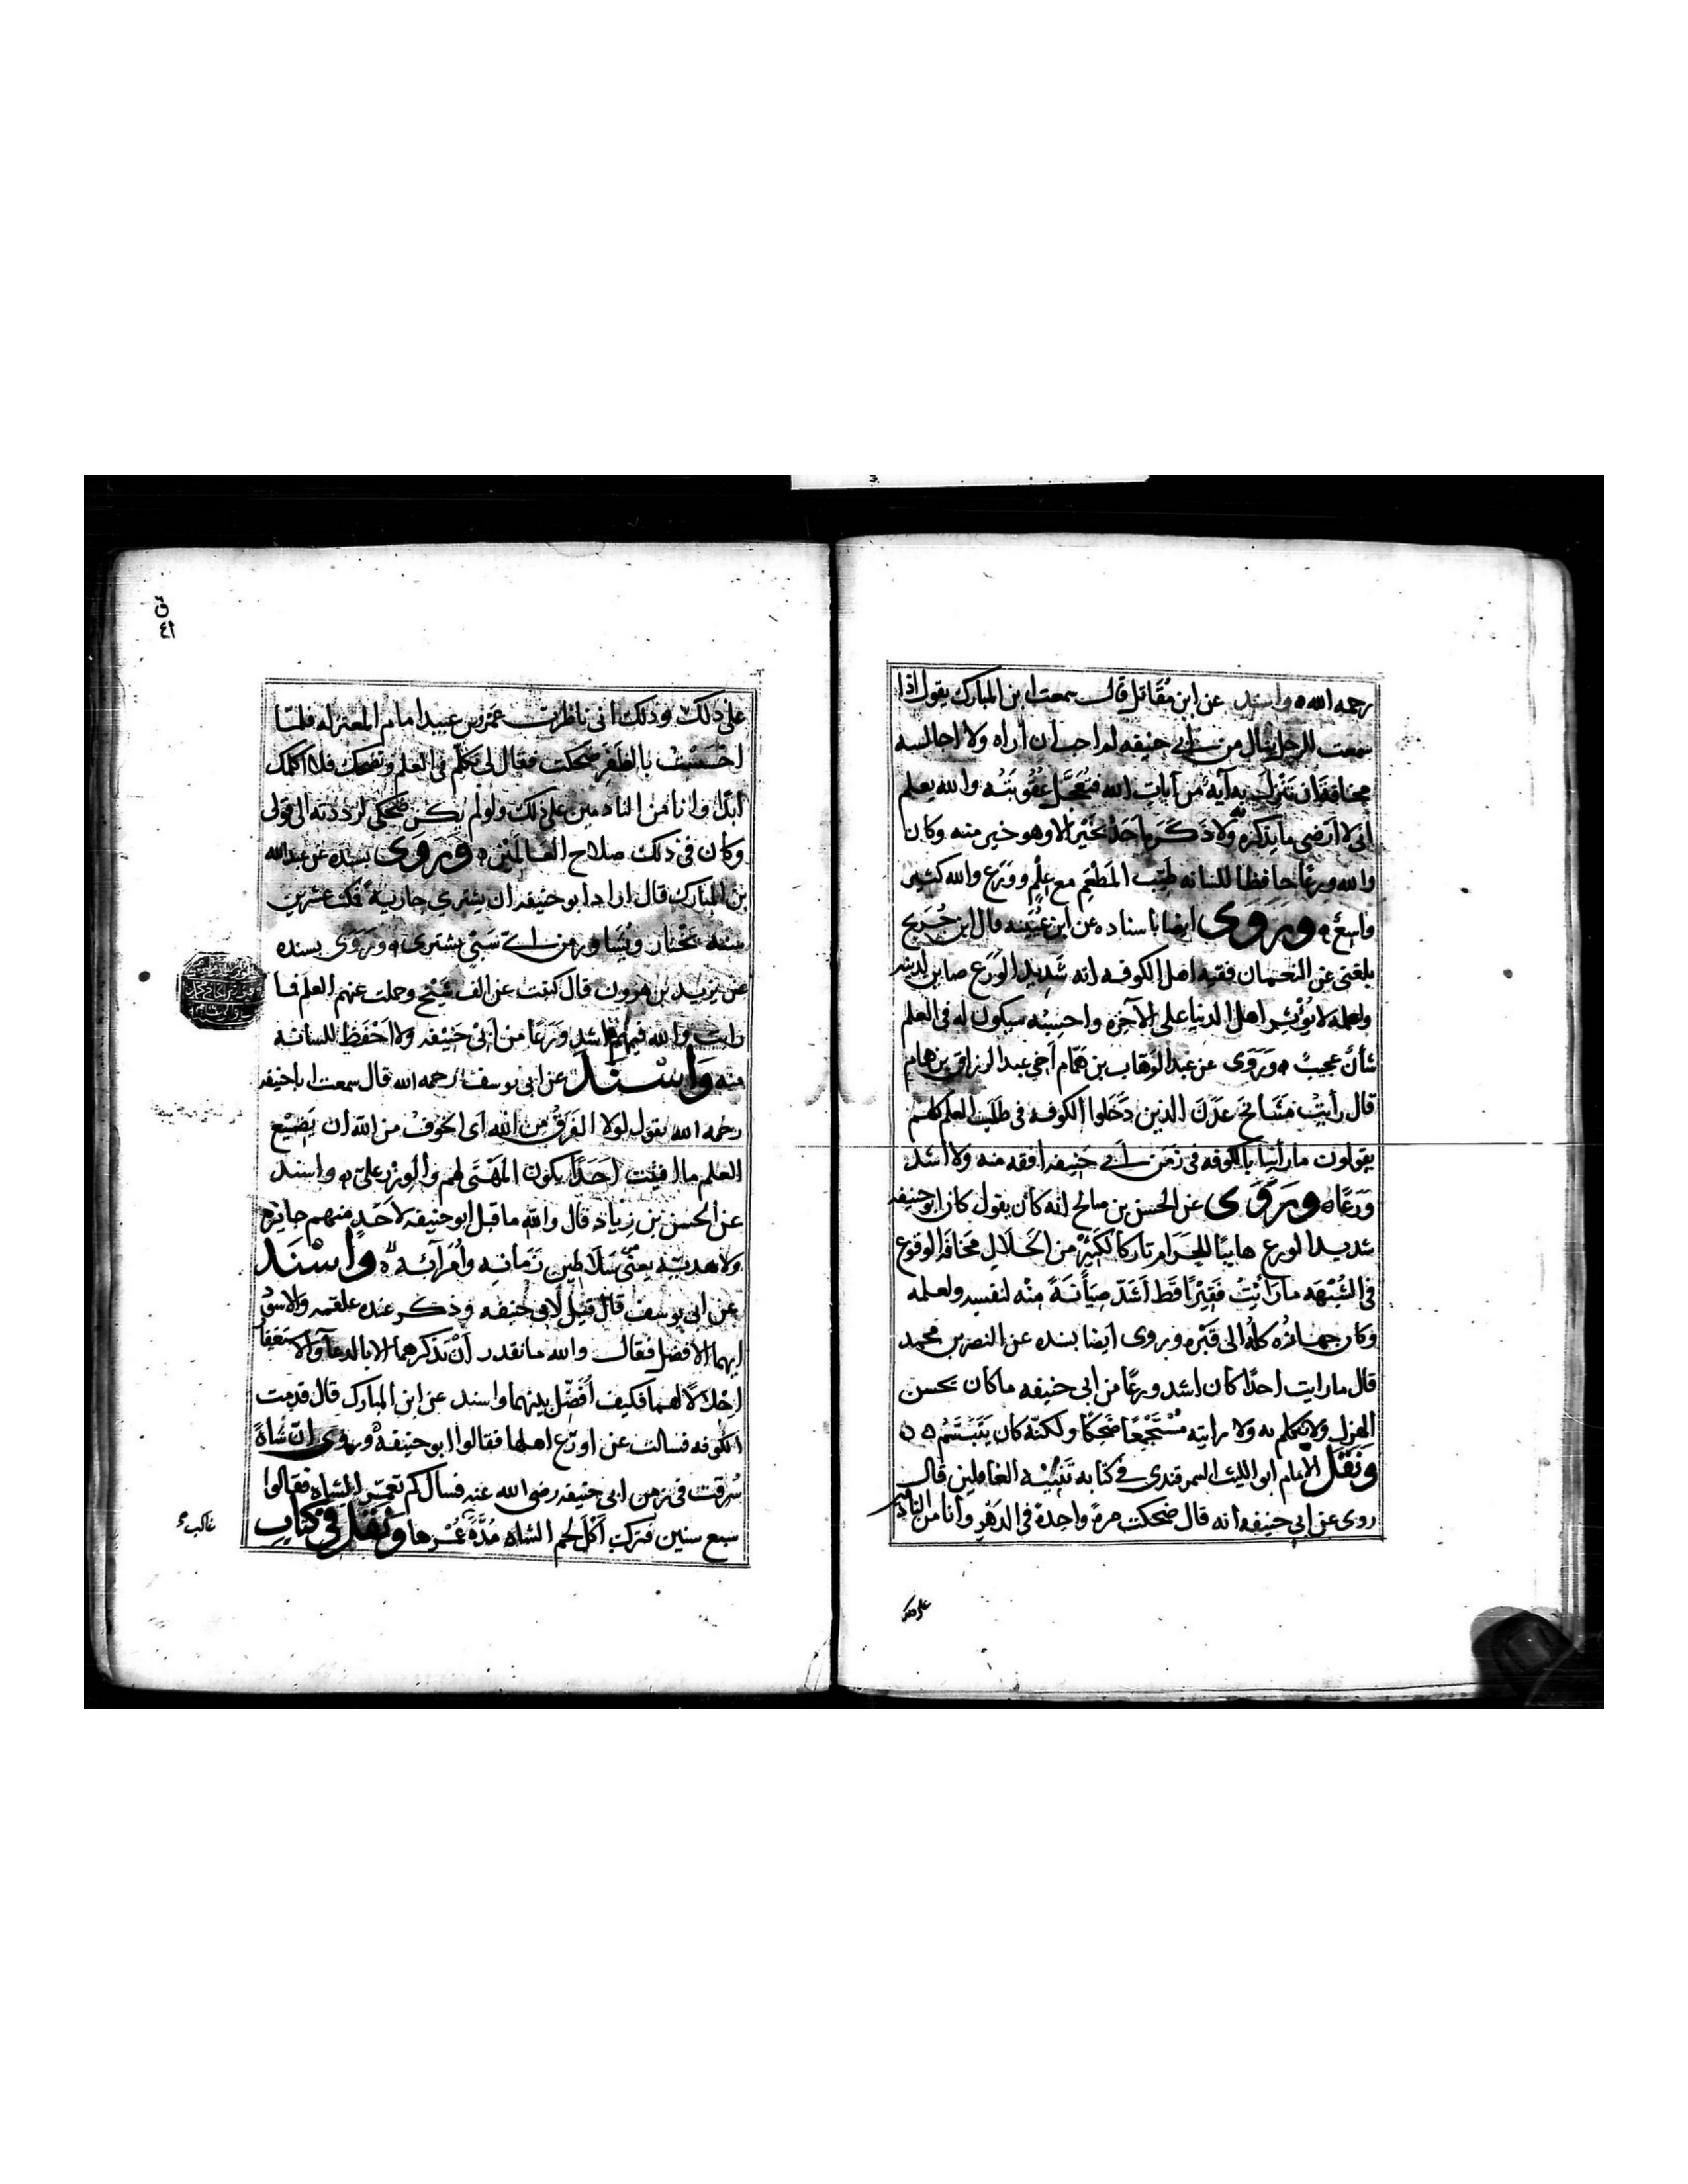 رحمه الله ه واسند عن ابن مُقَاتل قال سمعت ابن المبارك يقول اذا
سمعت الرجل ينال من ابي حنيفه لم احب ان اراه ولا اجالسه
مخافة ان تَنْزِلَ به آيَة من آيات الله فتُعَجَّل عُقُوبَتُه والله يعلم
اني لا ارضى ما يذكره ولا ذكره احد بخير الا وهو خير منه وكان
والله ورعًا حافظا للسانه طَيّب المَطْعَم مع عِلْمٍ ووَرَع والله كثير
واسِعٌ ه وَرَوى ايضا باسناده عن ابن عُيَيْنه قال ابن جُرَيج
بلغنى عن النعمان فقيه اهل الكوفه انه شَديد الوَرَع صاين لدينه
ولعلمه لا يُؤْثِر اهل الدنيا على الآخره واحسِبُه سيكون له فى العلم
شأن عجيبٌ ه وَرَوَى عن عبد الوهاب بن همّام أخي عبد الرزاق بن همام
قال رأيتُ مَشَائخ عدن الذين دَخَلوا الكوفه فى طلَب العلم كلهم
يقولون ما رأينا بالكوفه فى زَمَن ابي حَنيفه افقه منه ولا اشد
وَرَعًا ه وَرَوَى عن الحسن بن صالح انه كان يقول كان ابو حنيفه
شديد الورع هايبًا للحَرام تاركا لكثيرٍ من الحَلال مخافة الوقوع
فى الشُبْهَه ما رَأيتُ فَقِيْهًا قَط اَشَدّ صِيَانَةً مِنْه لنفسِه ولعلمه
وكان جهازُه كلُّه الى قَبْرِه وروى ايضا بسنده عن النصر بن محمد
قال ما رايت احدًا كان اشد ورعًا من ابى حنيفه ما كان يحسن
الهزل ولا يتكلم به ولا رايته مُسْتَجْمِعًا ضَحِكًا ولكنّه كان يَتَبَسَّم ه ه
وَنَقَلَ الامام ابو الليث السمرقندى فى كتابه تَنْبِيْه الغافلين قال
روى عن ابي حنيفه انه قال ضحكت مرةً واحِدةً فى الدَهْرِ وانا من النادمين
على ذلك
ق
٤١
على ذلك وذلك انى ناظرت عَمْرو بن عبيد امام المعتزله فلمّا
اَحْسَسْتُ بالظَفَر ضَحكت فقال لى تتكلم فى العلم وتضحك فلا اكلمك
ابدًا وانا من النادمين على ذلك ولو لم يكن ضحكى لرددته الى قولى
وكان فى ذلك صلاح العَالَمَيْن ه وَرَوَى بسنده عن عبد الله
بن المبارك قال اراد ابو حنيفه ان يشترى جارية فمكث عشرين
سنه يختار ويُشاور من اىّ سَبْيٍ يشترى ه وَرَوَى بسنده
عن يزيد بن هرون قال كتبت عن الف شَيْخ وحملت عنهم العلم فما
رايت والله فيهم اشد وَرَعًا من ابي حَنيفه ولا احْفَظ للسانه
منه وَاسْنَدَ عن ابي يوسف رحمه الله قال سمعت ابا حنيفه
رحمه الله يقول لولا الفَرَقُ من الله اى الخوف من الله ان يَضِيْع
العلم ما افتيت اَحَدًا يكون المَهْنَى لهم والوِزْر عليّ ه واسند
عن الحسن بن زياد قال والله ما قبل ابو حنيفه لاَحَدٍ منهم جايزه
ولا هديّه يعنى سَلاطين زَمانِه واُمَرَآئه ه وَاسْنَدَ
عن ابى يوسف قال قيل لابى حنيفه وذكر عنده علقمه والاسود
ايهما الافضل فقال والله ما نقدر اَنْ نذكرهما الا بالدعآ والاستغفار
اجلالاً لهما فكيف اُفَضّل بينهما واسند عن ابن المبارك قال قدمت
الكوفه فسالت عن اورَع اهلها فقالوا ابو حنيفة ه وروى انّ شاةً
سُرقت فى زمن ابى حنيفه رضى الله عنه فسال كم تعيش الشاه فقالوا
سبع سنين فترك اَكْل لحم الشاه مُدَّةَ عُمْرِها وَنَقَلَ فى كتابِ